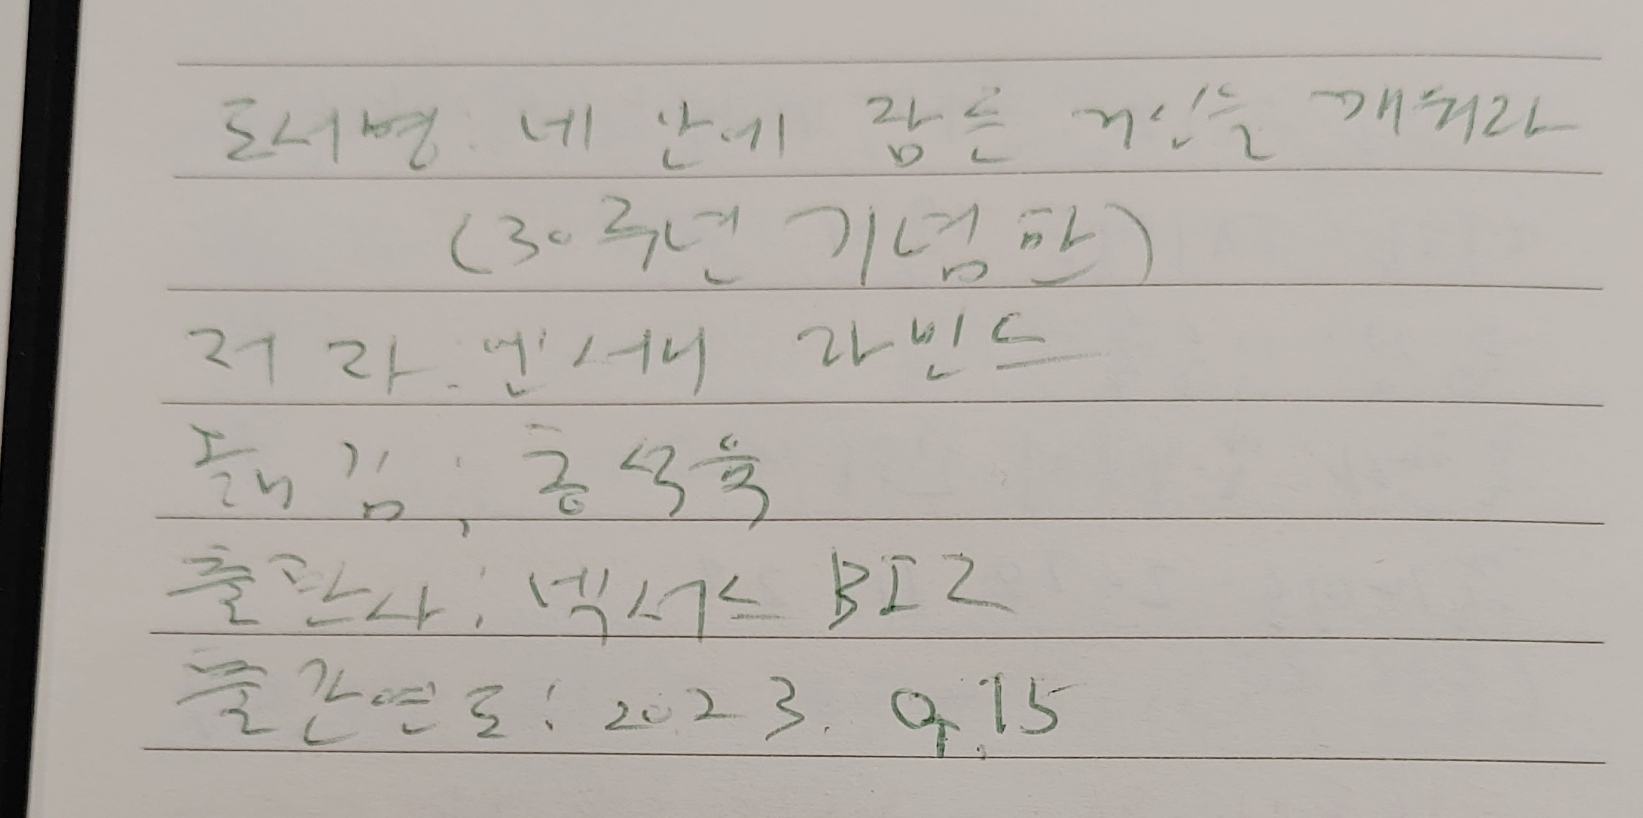 도서명: 네 안에 잠든 거인을 깨워라
(30주년 기념판)
저 자: 앤서니 라빈스
옮김: 홍석윤
출판사: 넥서스 BIZ
출간연도: 2023. 9.15